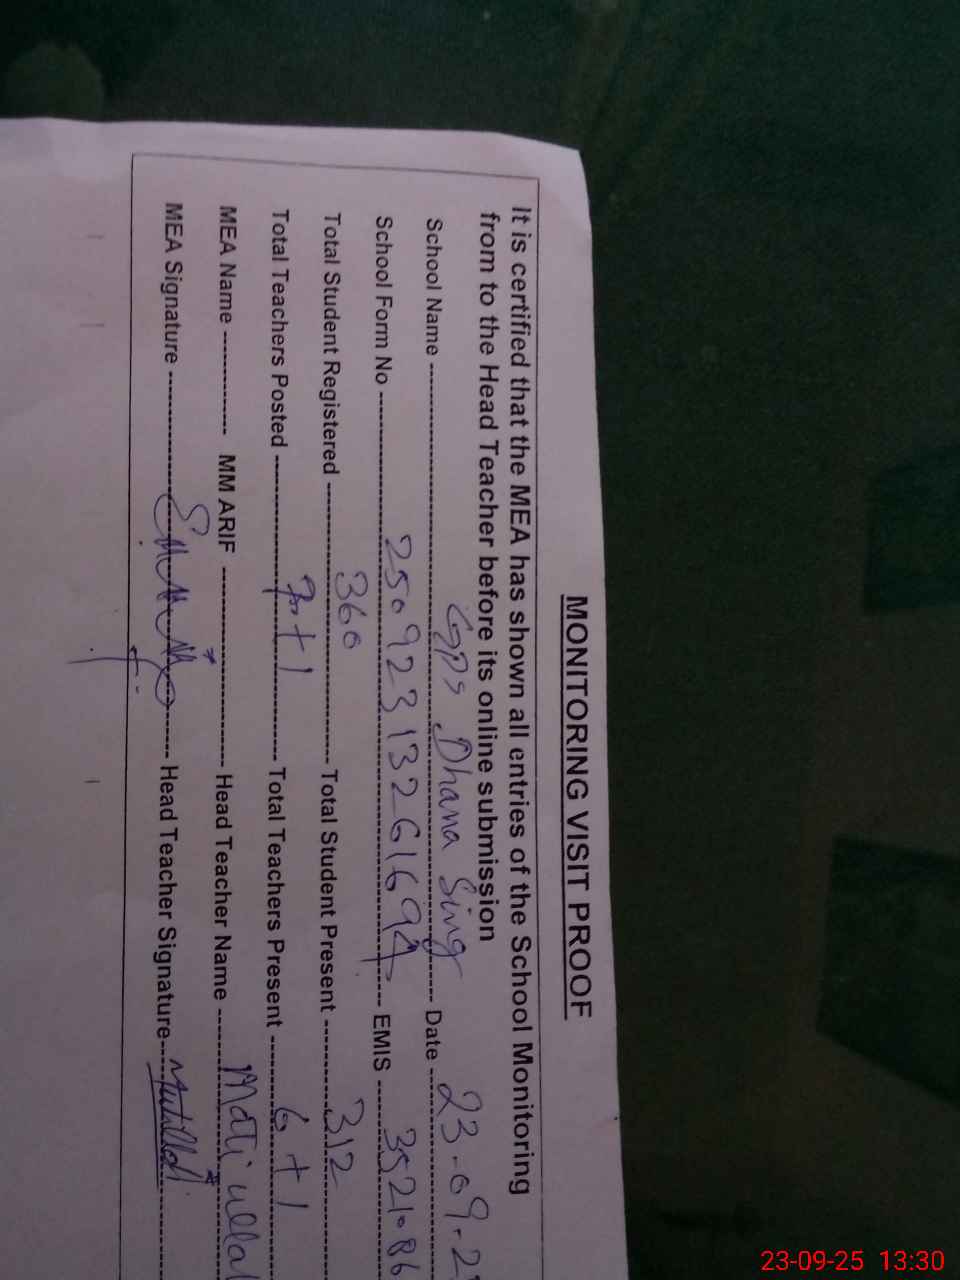 MONITORING VISIT PROOF
It is certified that the MEA has shown all entries of the School Monitoring
from to the Head Teacher before its online submission
School Name GPS Dhana Sing Date 23-09-2
School Form No 25092313261694 EMIS 3521086
Total Student Registered 360 Total Student Present 312
Total Teachers Posted 7+1 Total Teachers Present 6+1
MEA Name MM ARIF Head Teacher Name Mati ullah
MEA Signature Head Teacher Signature
23-09-25 13:30